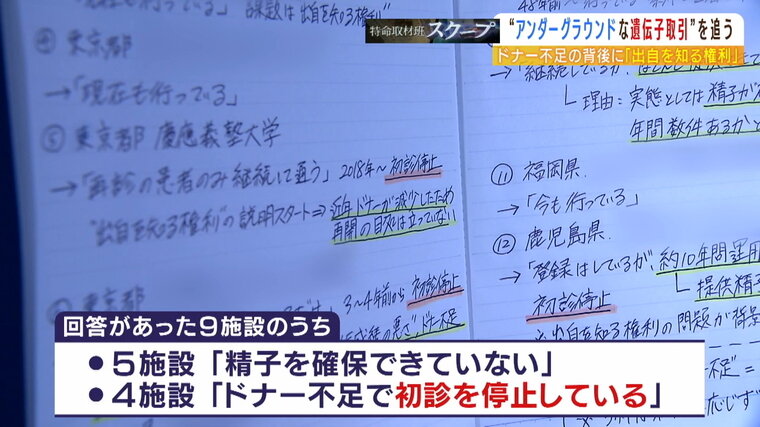 特命取材班 スクープ
“アンダーグラウンドな遺伝子取引”を追う
ドナー不足の背後に「出自を知る権利」
④ 東京都
→「現在も行っている」
⑤ 東京都 慶應義塾大学
→「再診の患者のみ継続して通う」2018年~初診停止
“出自を知る権利”の説明スタート⇒近年ドナーが減少したため
再開の目処は立っていない
東京都
3~4年前から 初診停止
ドナー不足
└ 理由:実態としては精子が
年間数件あるかと
⑪ 福岡県
→「今も行っている」
⑫ 鹿児島県
→「登録はしているが、約10年間運用
初診停止
└ 提供精子
出自を知る権利の問題が背景
回答があった9施設のうち
● 5施設「精子を確保できていない」
● 4施設「ドナー不足で初診を停止している」